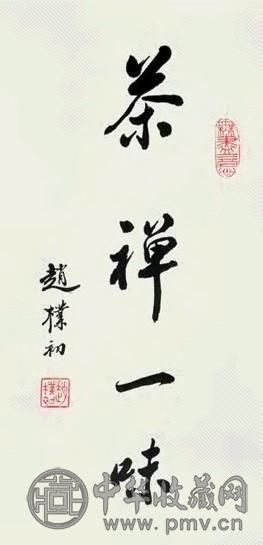 茶禅一味
趙樸初
中华收藏网
www.pmv.cn